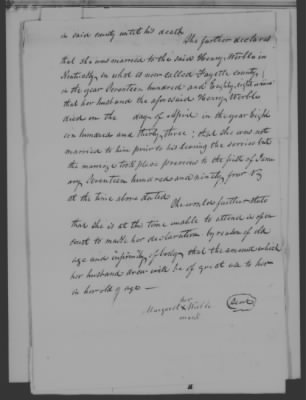 in said county until his death.
She further declares
that she was married to the said Henry Wibble in
Kentucky, in what is now called Fayette county,
in the year Seventeen hundred and Eighty
that her husband the aforesaid Henry
died on the day of April in the year Eigh
teen hundred and thirty three; that she was not
married to him prior to his leaving the service but
the marriage took place previous to the first of Janu
ary Seventeen hundred and ninety four viz
at the time above stated.
She would further state
that she is at this time unable to attend in open
court to make her declaration by reason of old
age and infirmity of body, that the amount which
her husband drew will be of great use to her
in her old age —
her
Margaret X
mark
Seal